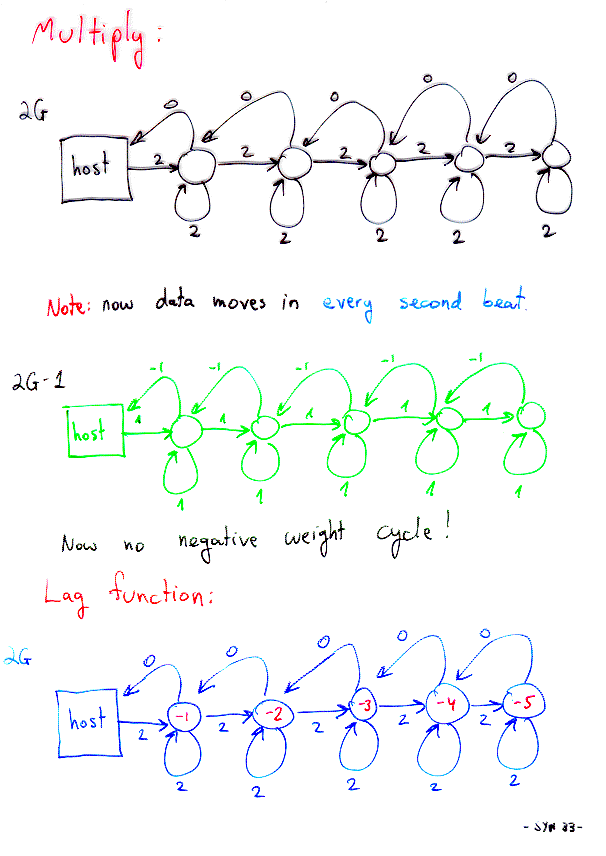 Multiply:
0 0 0 0 0
2G
host 2 2 2 2 2
2 2 2 2 2
Note: now data moves in every second beat.
-1 -1 -1 -1 -1
2G-1
host 1 1 1 1 1
1 1 1 1 1
Now no negative weight cycle!
Lag function:
0 0 0 0 0
2G
host -1 -2 -3 -4 -5
2 2 2 2 2
2 2 2 2 2
- SYN 33-